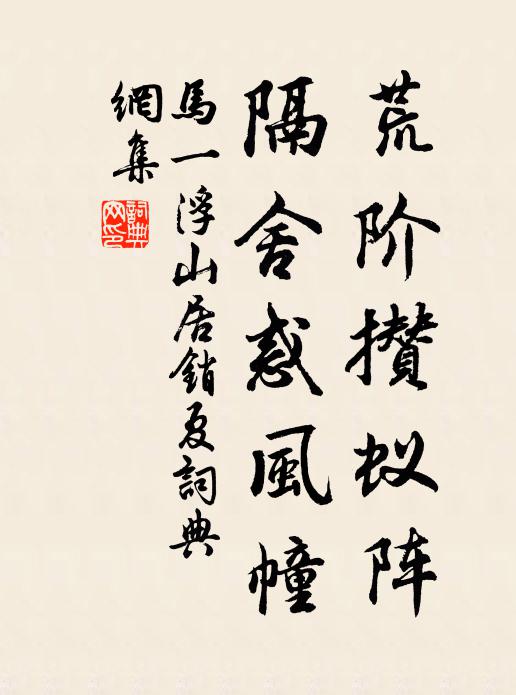 荒阶攒蚁阵
隔舍惑風幢
馬一浮山居銷夏詞典
網集
詞典网印